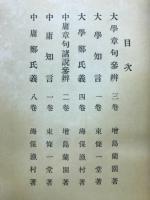 目次
大學章句參辨 三卷 増島蘭園著
大學知言 一卷 東條一堂著
大學鄭氏義 四卷 海保漁村著
中庸章句諸說參辨 二卷 増島蘭園著
中庸知言 一卷 東條一堂著
中庸鄭氏義 八卷 海保漁村著